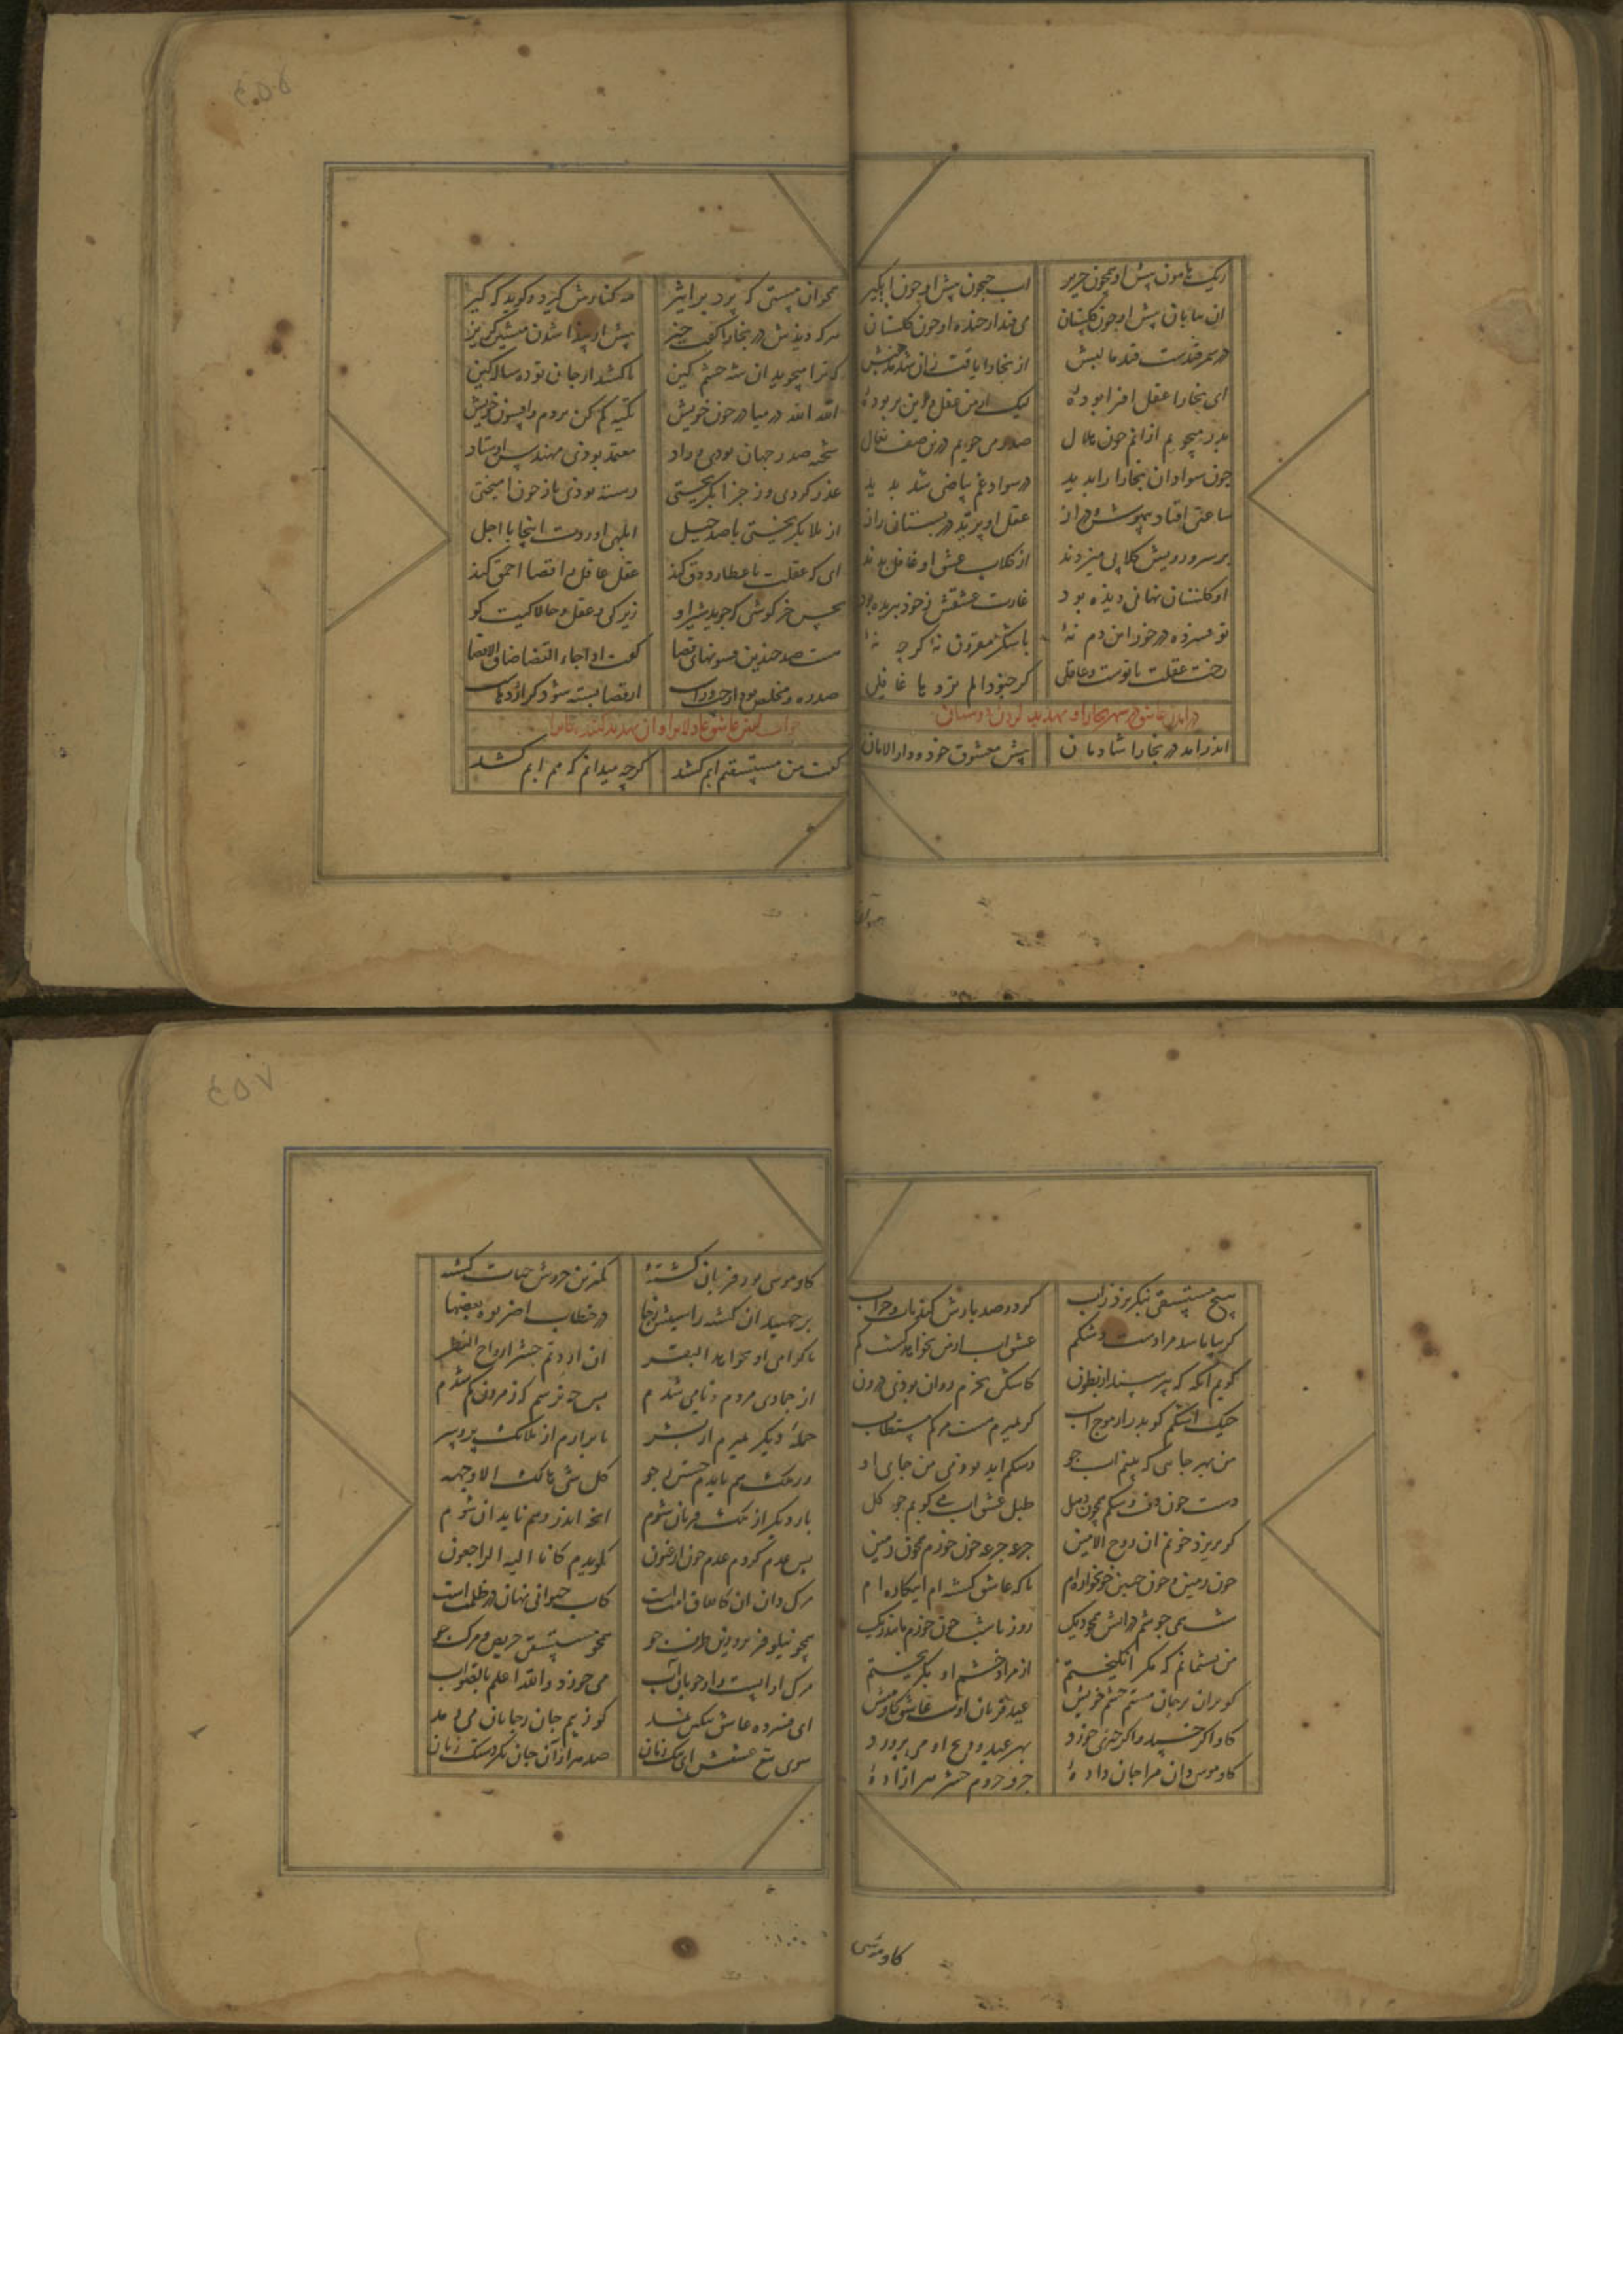 ریک هامون پیش او همچون حریر اب جیحون پیش او چون ابکیر
ان بیابان پیش او چون کلستان می فتاد از خنده او چون کلستان
در سمرقندست قند ما لبش از بخارا یافت زان شد مذهبش
ای بخارا عقل افزا بوده لیک از من عقل و دین بربوده
بدر میجویم ازانم چون هلال صدر می جویم درین صف نعال
چون سواد ان بخارا را بدید در سواد غم بیاضی شد بدید
ساعتی افتاد بیهوش و دراز عقل او پرید در بستان راز
بر سر و رویش کلابی میزدند از کلاب عشق او غافل بدند
او کلستان نهانی دیده بود غارت عشقش ز خود ببریده بود
تو فسرده درخور این دم نه با شکر مقرون نه کر چه نه
رخت عقلت با توست و عاقلی کز جنودا لم تروها غافلی
در امدن عاشق در شهر بخارا و تهدید کردن دوستان
اندر امد در بخارا شادمان پیش معشوق خود و دار الامان
همچو ان مستی که پرد بر اثیر مه کنارش کیرد و کوید که کیر
هر که دیدش در بخارا کفت خیز پیش از پیدا شدن منشین کریز
که ترا میجوید ان شه خشم کین تا کشد از جان تو ده ساله کین
الله الله در میا در خون خویش تکیه کم کن بر دم و افسون خویش
شحنه صدر جهان بودی و راد معتمد بودی مهندس اوستاد
غدر کردی وز جزا بکریختی رسته بودی باز چون اویختی
از بلا بکریختی با صد حیل ابلهی اوردت اینجا یا اجل
ای که عقلت با عطارد دق کند عقل عاقل را قضا احمق کند
نحس خرکوشی که جوید شیر او زیرکی و عقل و چالاکیت کو
هست صد چندین فسونهای قضا کفت اذا جاء القضا ضاق الفضا
صد ره و مخلص بود از چپ و راست از قضا بسته شود کر اژدهاست
جواب کفتن عاشق عاذلانرا و ان تهدید کنندکانرا
کفت من مستسقیم ابم کشد کرچه میدانم که هم ابم کشد
هیچ مستسقی بنکریزد ز اب کر دو صد بارش کند مات و خراب
کر بیاماسد مرا دست و شکم عشق اب از من نخواهد کشت کم
کویم انکه که بپرسند از بطون کاشکی بحرم روان بودی درون
خیک اشکم کو بدر از موج اب کر بمیرم هست مرکم مستطاب
من بهر جایی که بینم اب جو رشکم اید بودمی من جای او
دست چون دف و شکم همچون دهل طبل عشق اب می کوبم چو کل
کر بریزد خونم ان روح الامین جرعه جرعه خون خورم همچون زمین
چون زمین و چون جنین خونخواره ام تا که عاشق کشته ام اینکاره ام
شب همی جوشم در اتش همچو دیک روز تا شب خون خورم مانند ریک
من پشیمانم که مکر انکیختم از مراد خشم او بکریختم
کو بران بر جان مستم خشم خویش عید قربان اوست عاشق کاومیش
کاو اکر خسپد و اکر چیزی خورد بهر عید و ذبح او می پرورد
کاو موسی دان مرا جان داده جزو جزوم حشر هر ازاده
کاو موسی
کاو موسی بود قربان کشته کمترین جزوش حیات کشته
برجهید ان کشته ز اسیبش ز جا در خطاب اضربوه بعضها
یا کرامی اذبحوا هذا البقر ان اردتم حشر ارواح النظر
از جمادی مردم و نامی شدم پس چه ترسم کی ز مردن کم شدم
حمله دیکر بمیرم از بشر تا برارم از ملائک پر و سر
وز ملک هم بایدم جستن ز جو کل شی هالک الا وجهه
بار دیکر از ملک قربان شوم انچه اندر وهم ناید ان شوم
پس عدم کردم عدم چون ارغنون کویدم کانا الیه راجعون
مرک دان ان کاتفاق امتست کاب حیوانی نهان در ظلمتست
همچو نیلوفر برو زین طرف جو همچو مستسقی حریص و مرک جو
مرک او ابست و او جویای اب می خورد و الله اعلم بالصواب
ای فسرده عاشق ننکین نمد کو ز بیم جان ز جانان می رمد
سوی تیغ عشقش ای ننک زنان صد هزاران جان نکر دستک زنان